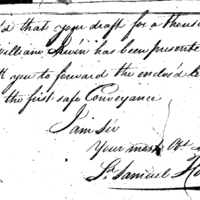 'd that your draft for a thous
William Irwin has been presente
k you to forward the enclosed
the first safe Conveyance
I am Sir
Your most Obt
Samuel